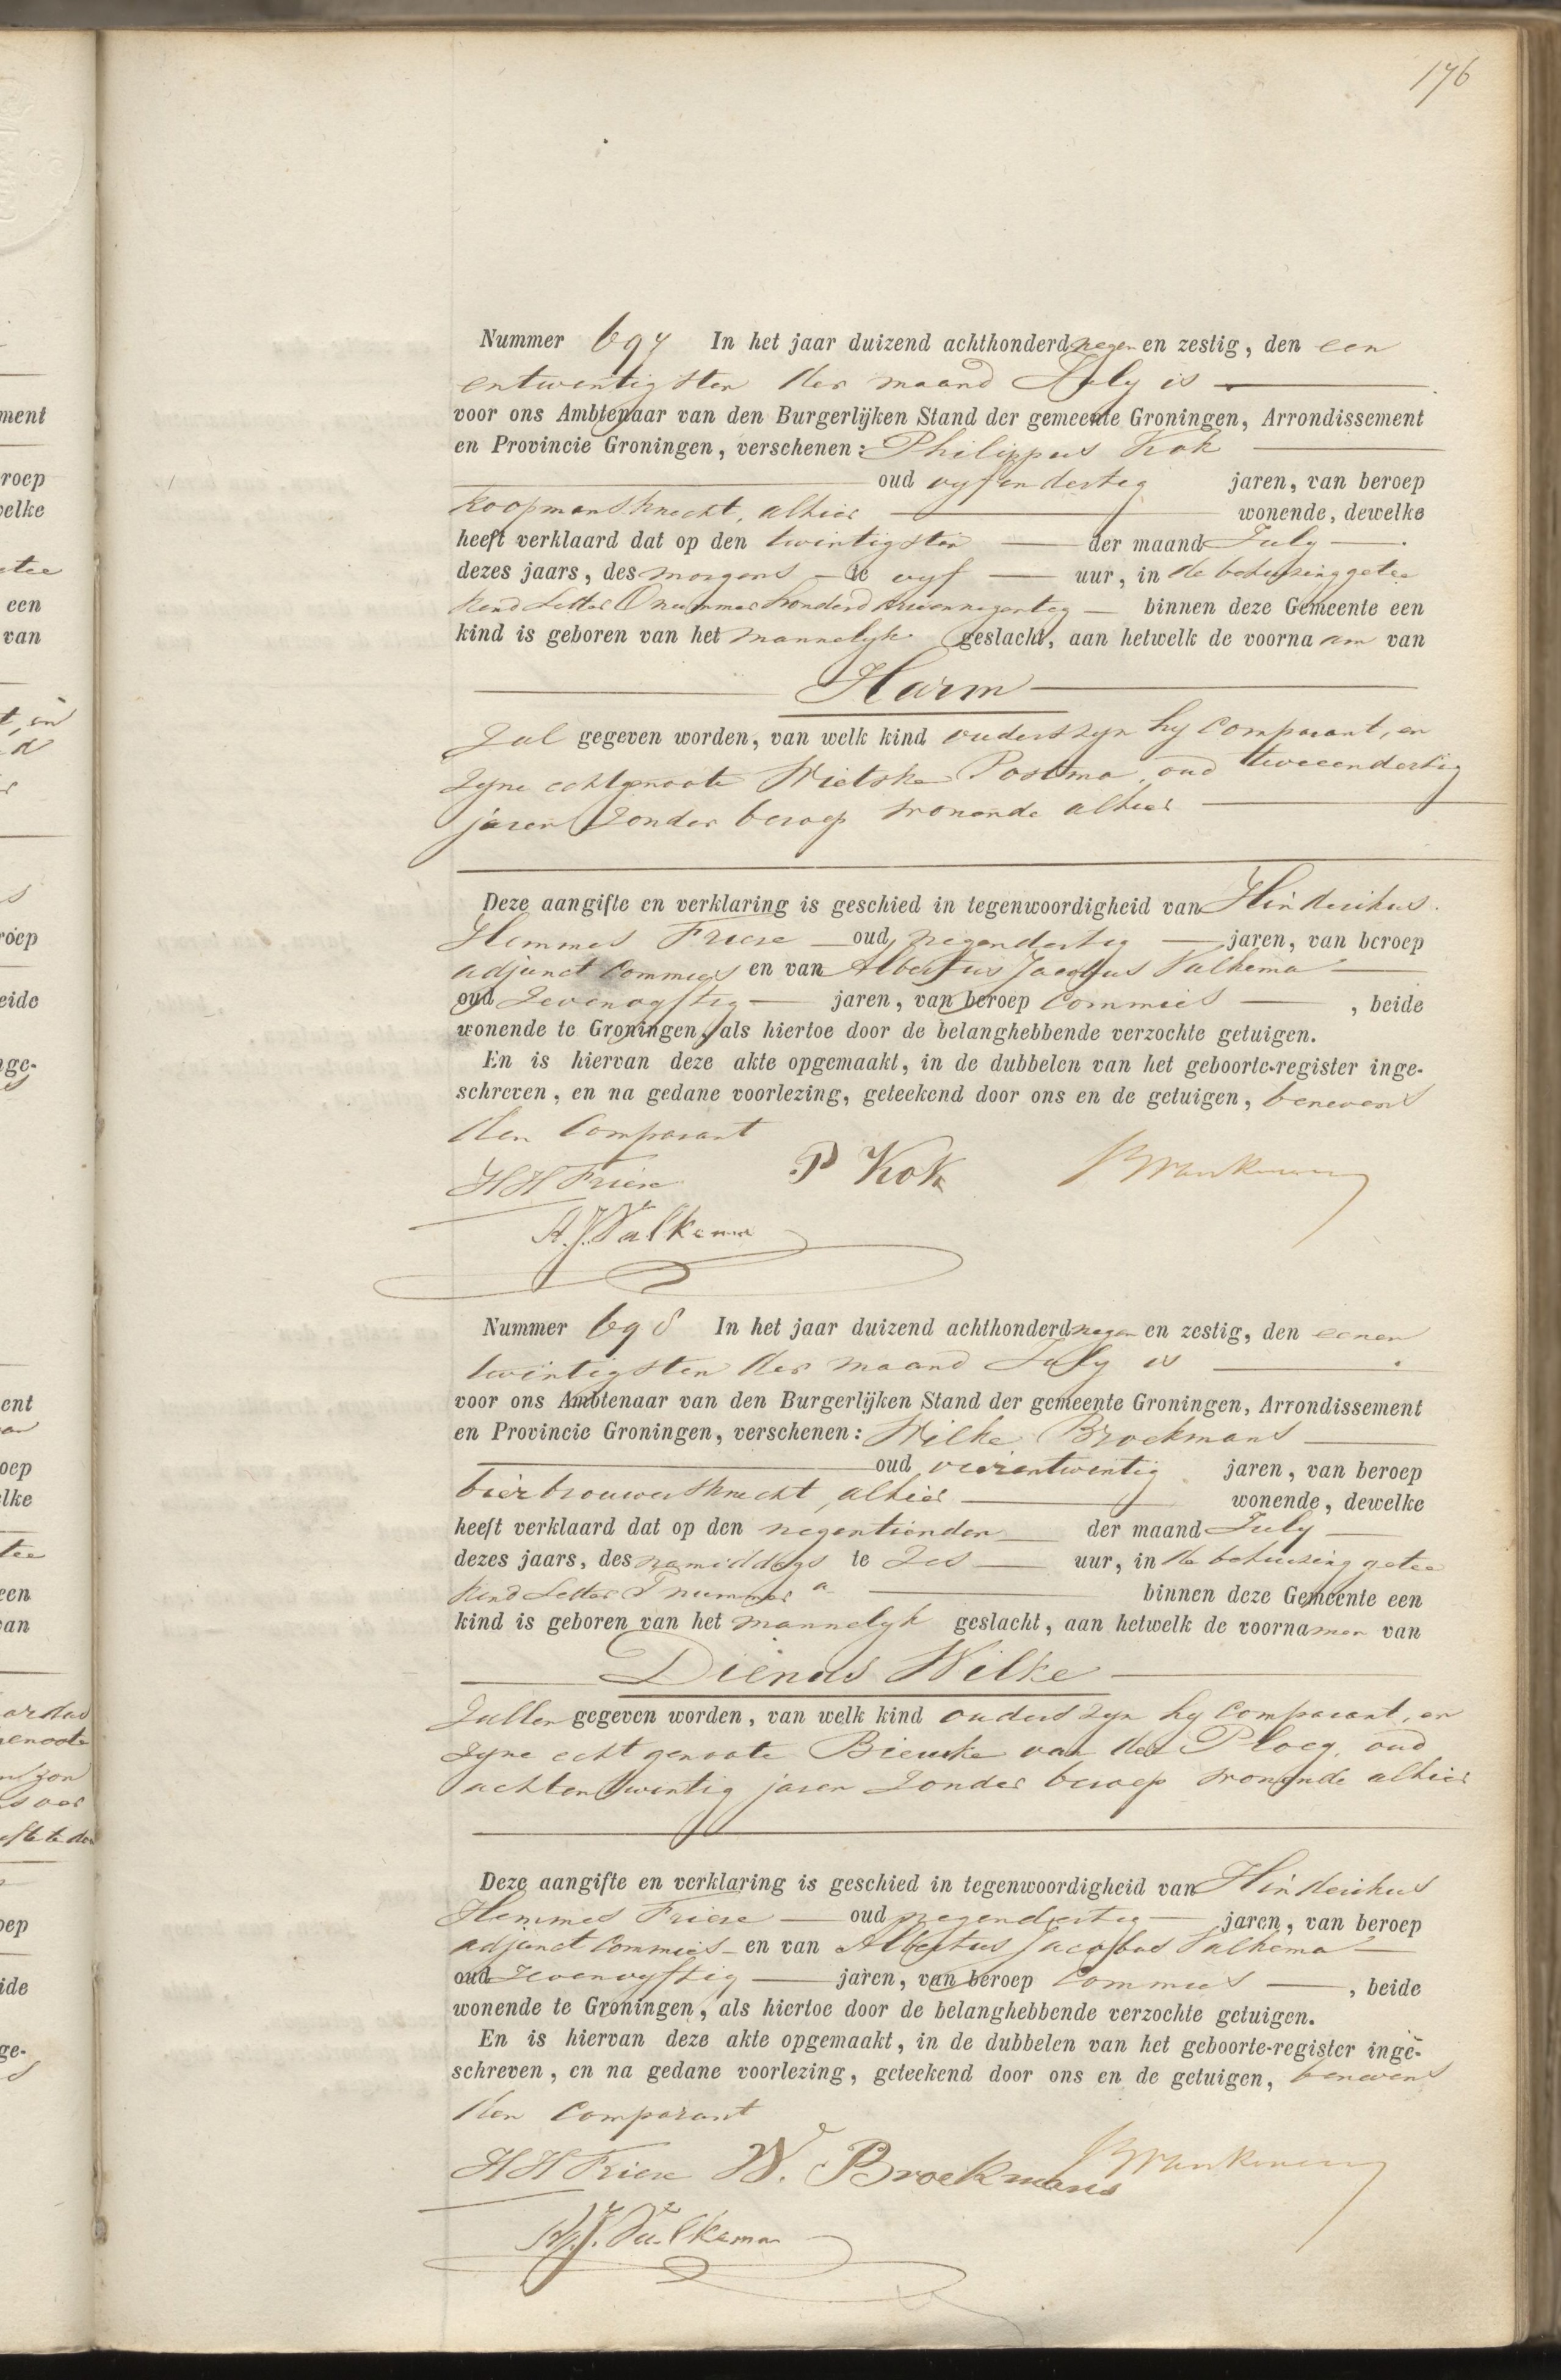 176
ment
roep
welke
een
van
roep
eide
nge-
ent
oep
lke
een
van
oep
ide
ge-
Nummer 697 In het jaar duizend achthonderd negen en zestig, den een
entwintigsten der maand July is
voor ons Ambtenaar van den Burgerlijken Stand der gemeente Groningen, Arrondissement
en Provincie Groningen, verschenen: Philippus Kok
oud vyfendertig jaren, van beroep
koopmansknecht, alhier wonende, dewelke
heeft verklaard dat op den twintigsten der maand July
dezes jaars, des morgens te vyf uur, in de behuizing getee
kend Letter O nummer honderd binnen deze Gemeente een
kind is geboren van het mannelyk geslacht, aan hetwelk de voorna am van
Harm
Zal gegeven worden, van welk kind ouders zyn hy Comparant, en
zyne echtgenoote Wietske Postma, oud tweeendertig
jaren zonder beroep wonende alhier
Deze aangifte en verklaring is geschied in tegenwoordigheid van Hinderikus
Hemmes Friese oud negendertig jaren, van beroep
adjunct Commies en van Albertus Jacobus Valkema
oud zevenvyftig jaren, van beroep Commies , beide
wonende te Groningen, als hiertoe door de belanghebbende verzochte getuigen.
En is hiervan deze akte opgemaakt, in de dubbelen van het geboorte-register inge-
schreven, en na gedane voorlezing, geteekend door ons en de getuigen, benevens
den Comparant
HH Friese P Kok
A.J. Valkema
Nummer 698 In het jaar duizend achthonderd negen en zestig, den eenen
twintigsten der maand July is
voor ons Ambtenaar van den Burgerlijken Stand der gemeente Groningen, Arrondissement
en Provincie Groningen, verschenen: Wilke Broekmans
oud vierentwintig jaren, van beroep
bierbrouwersknecht, alhier wonende, dewelke
heeft verklaard dat op den negentienden der maand July
dezes jaars, des namiddags te zes uur, in de behuizing getee
kend Letter T nummer a binnen deze Gemeente een
kind is geboren van het mannelyk geslacht, aan hetwelk de voornamen van
Dienus Wilke
Zullen gegeven worden, van welk kind ouders zyn hy Comparant, en
zyne echtgenoote Bieuke van der Ploeg, oud
achtentwintig jaren zonder beroep wonende alhier
Deze aangifte en verklaring is geschied in tegenwoordigheid van Hinderikus
Hemmes Friese oud negendertig jaren, van beroep
adjunct Commies en van Albertus Jacobus Valkema
oud zevenvyftig jaren, van beroep Commies , beide
wonende te Groningen, als hiertoe door de belanghebbende verzochte getuigen.
En is hiervan deze akte opgemaakt, in de dubbelen van het geboorte-register inge-
schreven, en na gedane voorlezing, geteekend door ons en de getuigen, benevens
den Comparant
HH Friese W. Broekmans
A.J. Valkema